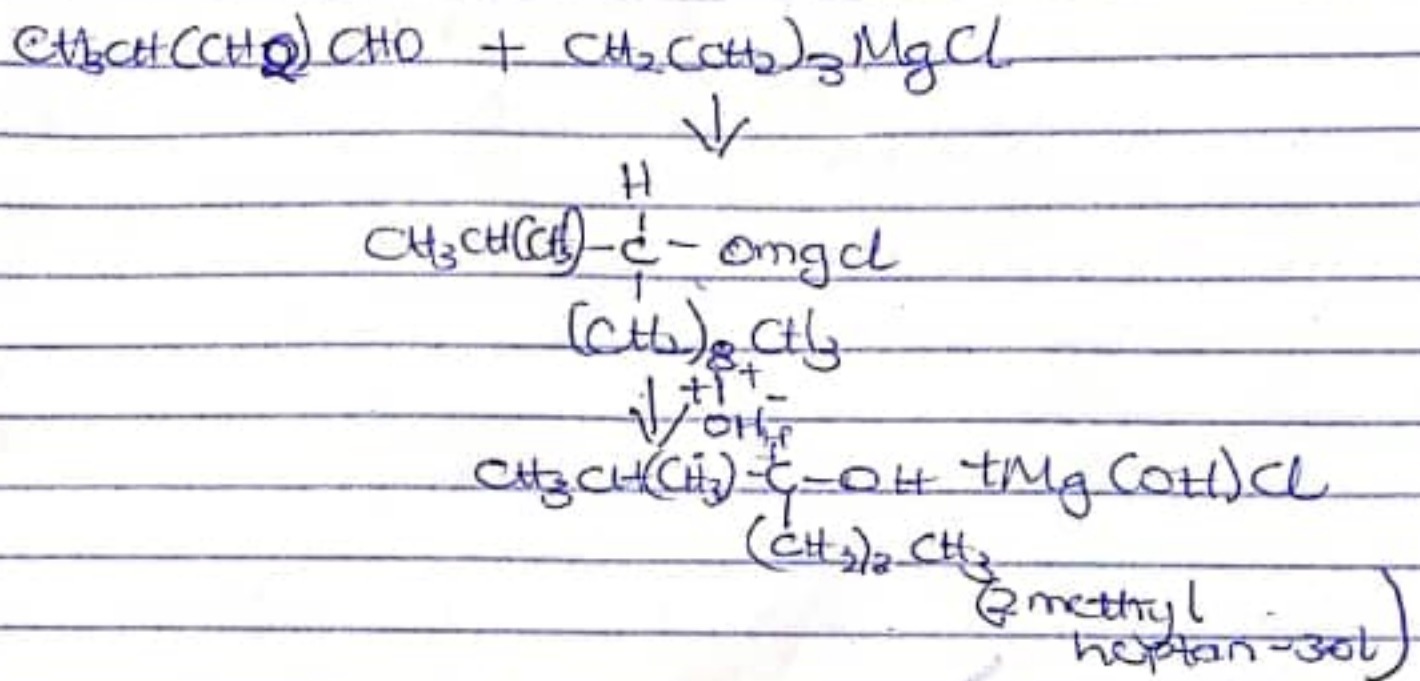 CH3CH(CH3)CHO + CH2(CH2)3MgCl
↓
H
CH3CH(CH3)-C-OmgCl
(CH2)3CH3
↓ H+/OH-
H
CH3CH(CH3)-C-OH +Mg(OH)Cl
(CH2)3CH3
(2methyl
heptan-3ol)